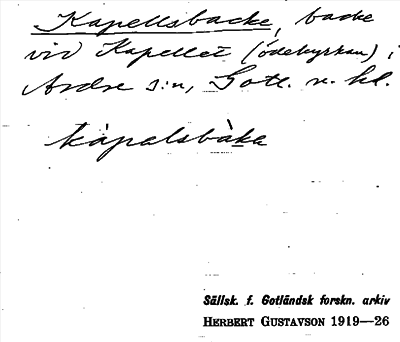 Kapellsbacke, backe
vid Kapellet (ödekyrkan) i
Ardre s:n, Gotl. n. hl.
kàpalsbàka
Sällsk. f. Gotländsk forskn. arkiv
HERBERT GUSTAVSON 1919—26